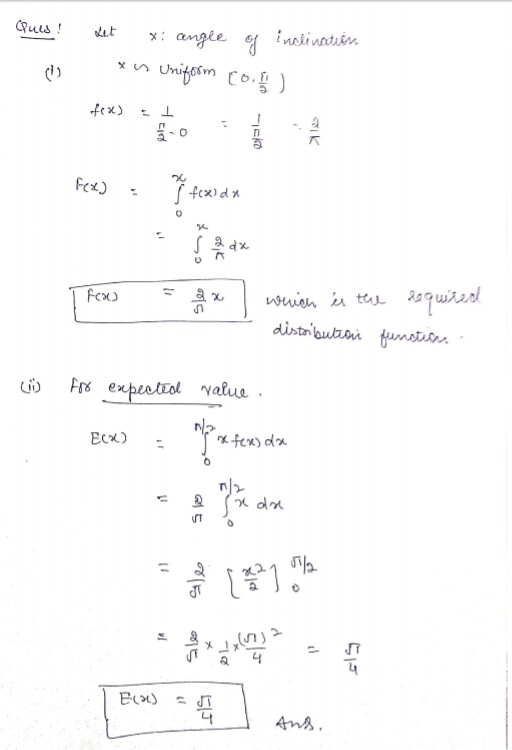 Ques! Let x: angle of inclination
(i) x ~ Uniform [0, π/2)
f(x) = 1/(π/2 - 0) = 1/(π/2) = 2/π
F(x) = ∫₀ˣ f(x) dx
= ∫₀ˣ 2/π dx
F(x) = 2/π x which is the required
distribution function.
(ii) For expected value.
E(x) = ∫₀^(π/2) x f(x) dx
= 2/π ∫₀^(π/2) x dx
= 2/π [x²/2]₀^(π/2)
= 2/π × 1/2 × (π)²/4 = π/4
E(x) = π/4 Ans.